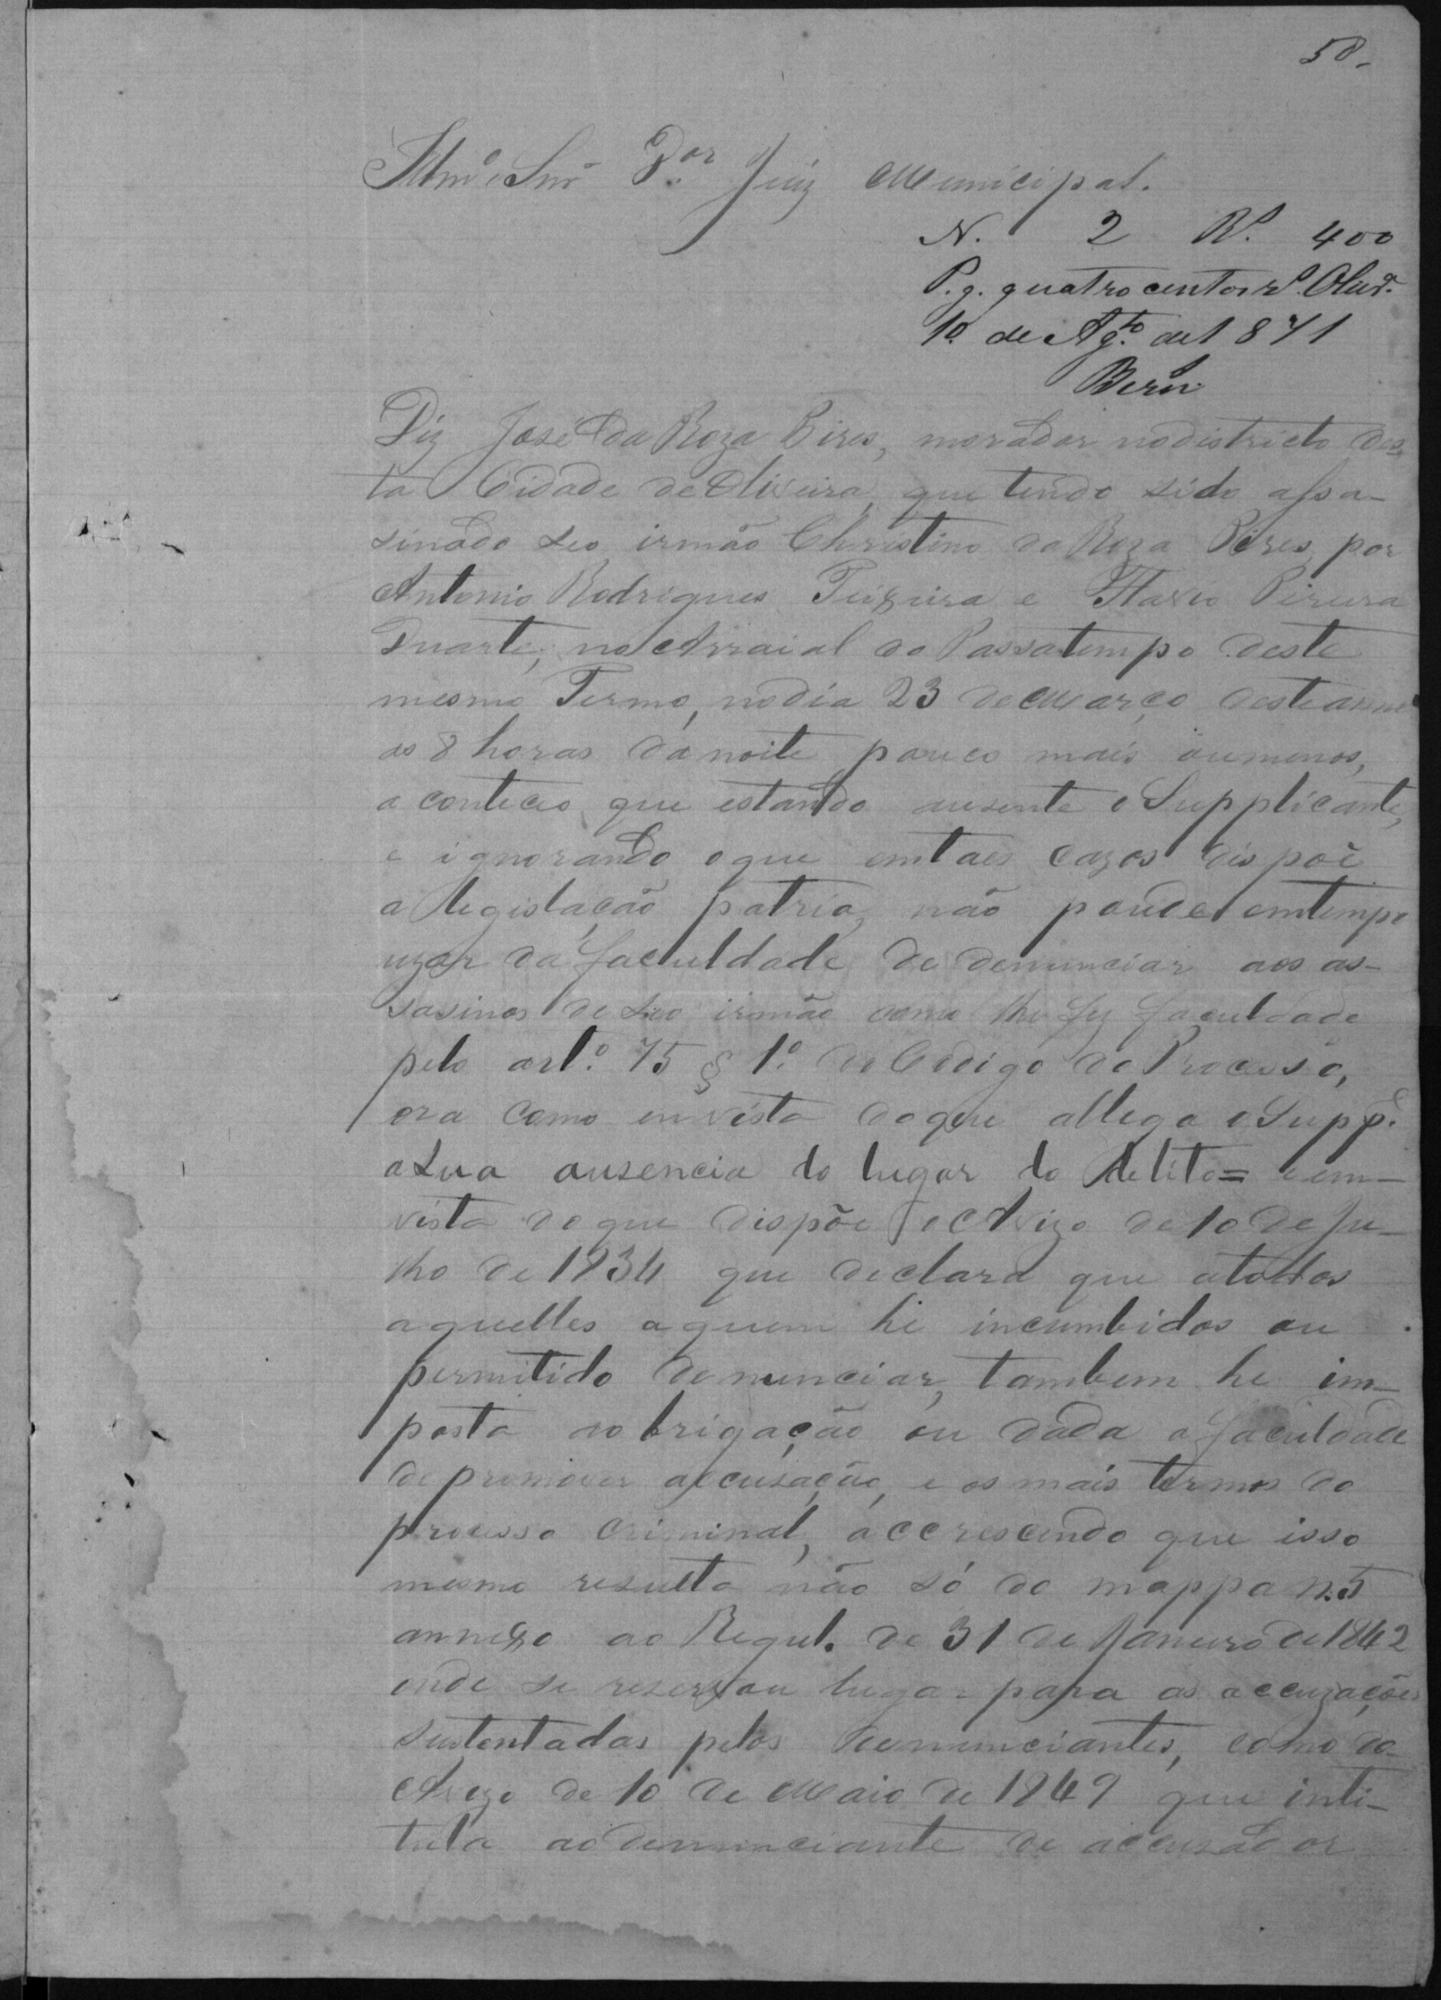 58-
Illmº Snr Dor Juiz Municipal.
N. 2 Rs. 400
P.g. quatrocentos rs. Olivª.
1º de Agto. de 1871
Diz José da Roza Pires, morador no districto des-
ta Cidade de Oliveira, que tendo sido assa-
sinado seo irmão Christino da Roza Pires por
Antonio Rodrigues Teixeira e Flavio Pereira
Duarte, no Arraial do Passatempo deste
mesmo Termo, no dia 23 de Março deste anno
as 8 horas da noite pouco mais ou menos,
aconteceo que estando auzente o Supplicante,
e ignorando o que em taes cazos dispoê
a legislação patria, não poude em tempo
uzar da faculdade de denunciar aos as-
sasinos de seo irmão como lhe fez faculdade
pelo artº. 75 § 1º. do Codigo do Processo,
ora como em vista do que allega o Suppe.
a sua ausencia do lugar do delito= e em-
vista do que dispõe o Avizo de 10 de Ju-
lho de 1834 que declara que a todos
aquelles a quem he incumbidos ou
permitido denunciar, tambem he im-
posta a obrigação ou dada a faculdade
de promover accuzação, e os mais termos do
processo criminal, accrescendo que isso
mesmo rezulta não só do mappa n.5
annexo ao Regul. de 31 de Janeiro de 1842
onde se rezervou lugar para as accuzações
sustentadas pelos denunciantes, como do
Avizo de 10 de Maio de 1849 que inti-
tula ao denunciante de accuzador